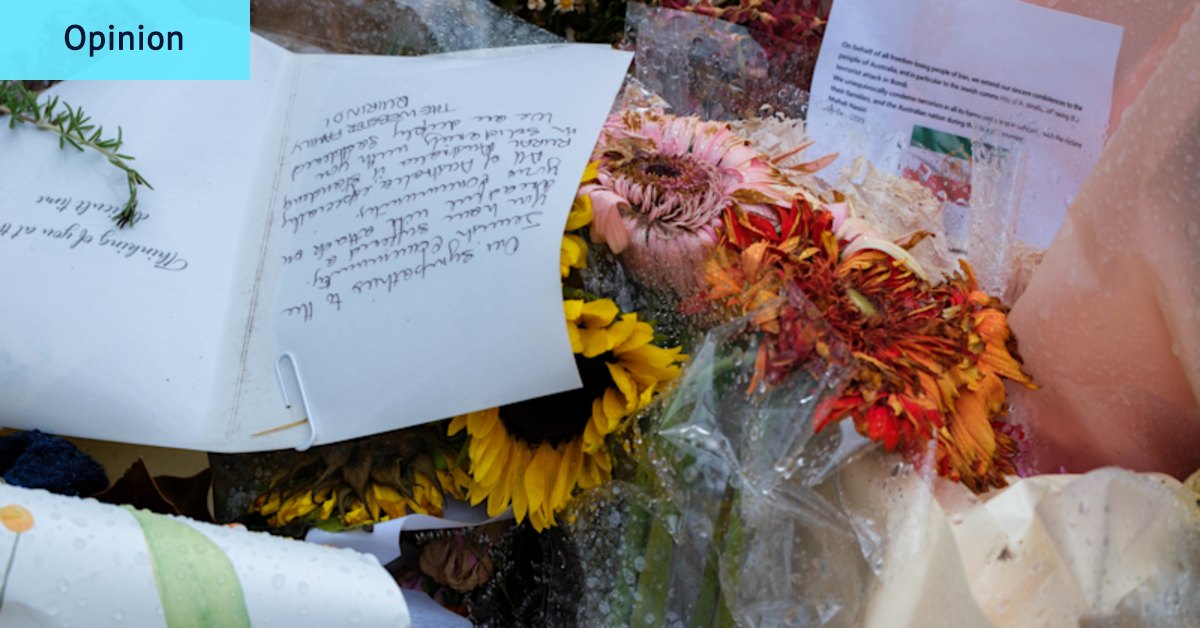 Opinion
Thinking of you at
time
Our sympathies to the
Jewish community.
You have suffered a
dreadful attack on
your community.
All of Australia especially
Rural Australia is standing
in solidarity with you
We are deeply saddened
THE WEBSTER FAMILY
BURINDI
On behalf of all freedom-loving people of Iran, we extend our sincere condolences to the
people of Australia, and in particular to the Jewish
terrorist attack in Bondi.
We unequivocally condemn terrorism in all its forms with the victims
their families, and the Australian nation during
Mahdi Nasiri